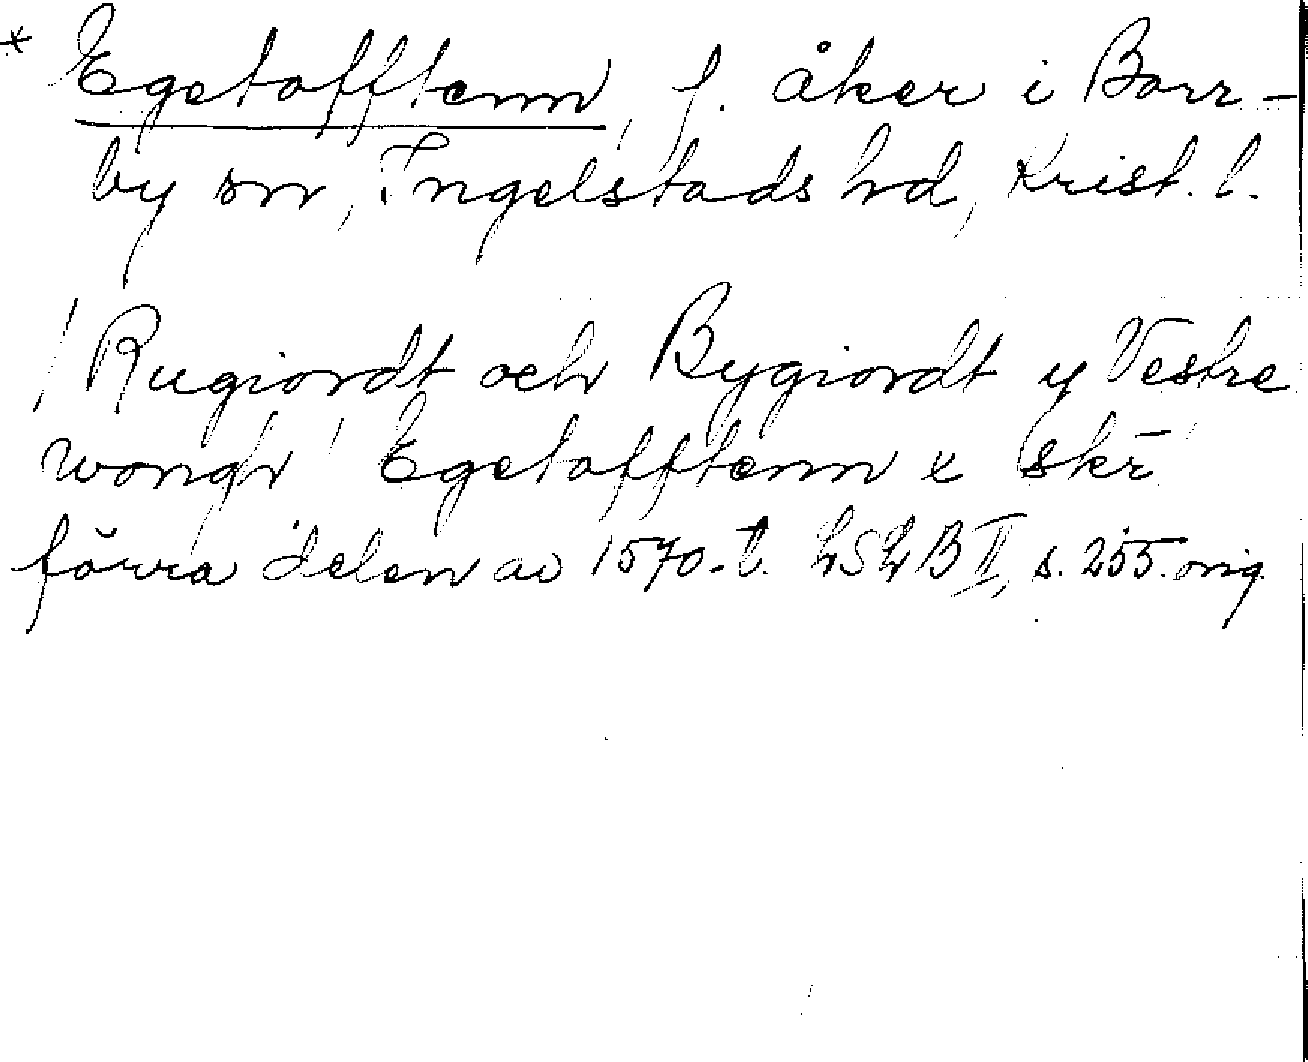 * Egetofftenn, f. åker i Borr-
by sn, Ingelstads hd, Krist. l.
/ Rugiordt och Bygiordt y Vestre
wongh / Egetofftenn x skr̄
förra delen av 1570-t. LSLB II, s. 255. orig.